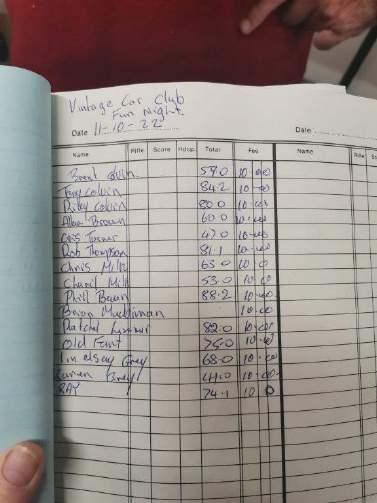 Vintage Car Club
Fun Night
Date 11-10-22 Date
Name Rifle Score Hdcap Total Fee Name Rifle
Brent Colvin 59.0 10.00
Colvin 84.2 10.00
Riley Colvin 80.0 10.00
Allan Brown 60.0 10.00
Turner 47.0 10.00
Rob Thompson 81.1 10.00
Chris Mills 63.0 10.0
Cheryl Mills 53.0 10.0
Phill Bean 88.2 10.00
Brian 10.00
Rachel 82.0 10.00
Old 10.00
Lindsay Grey 68.0 10.00
Karen 41.0 10.00
RAY 74.1 10 0